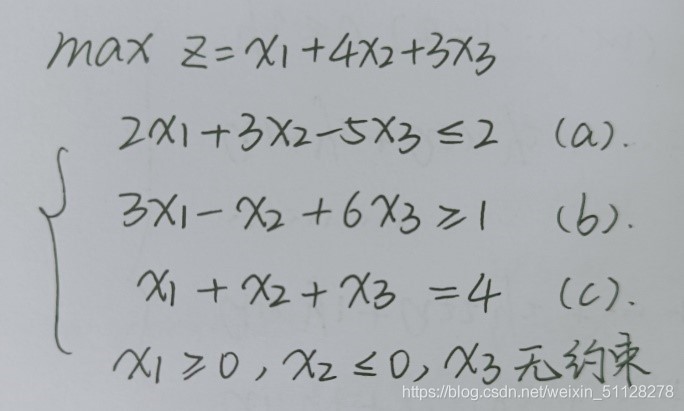 max z=x₁+4x₂+3x₃
2x₁+3x₂-5x₃≤2 (a).
3x₁-x₂+6x₃≥1 (b).
x₁+x₂+x₃=4 (c).
x₁≥0,x₂≤0,x₃无约束
https://blog.csdn.net/weixin_51128278